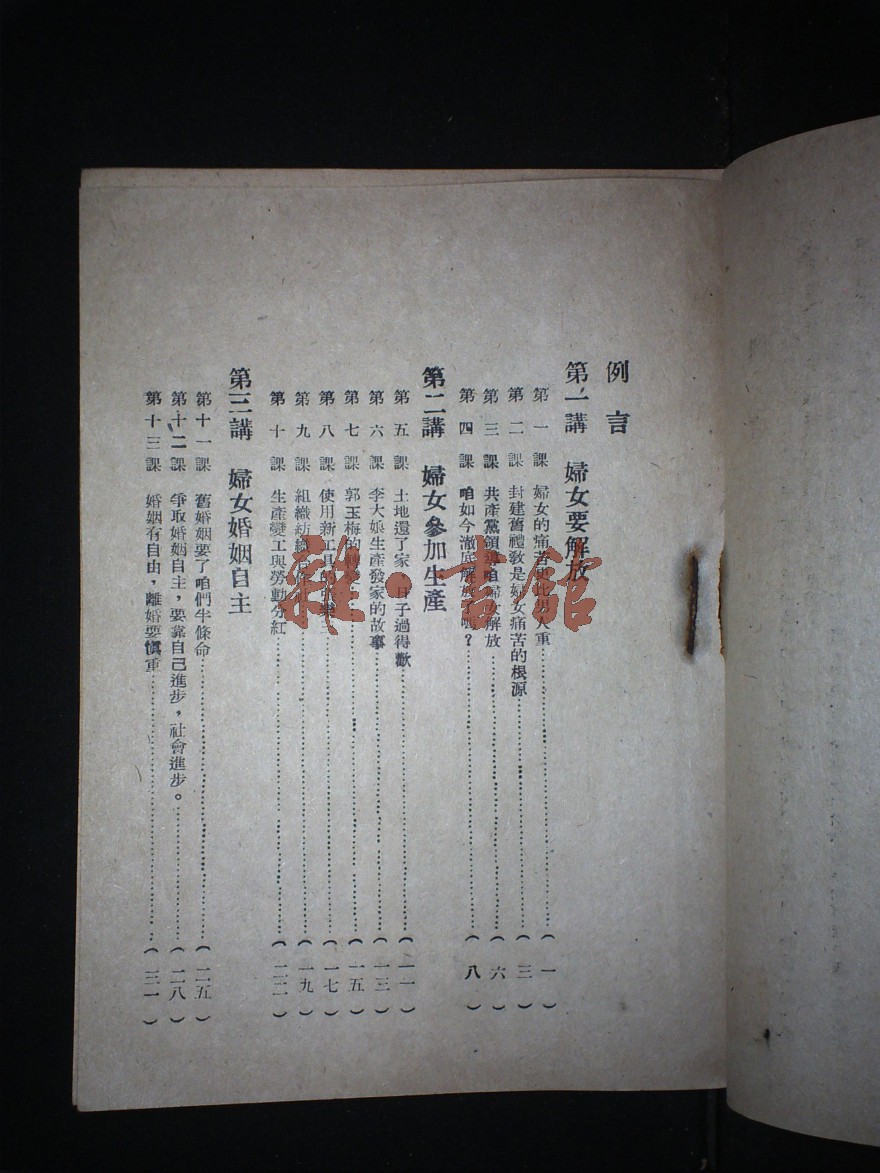 例言
第一講 婦女要解放
第一課 婦女的痛苦更比男人重(一)
第二課 封建舊禮教是婦女痛苦的根源(三)
第三課 共產黨領導咱婦女解放(六)
第四課 咱如今澈底解放了嗎?(八)
第二講 婦女參加生產
第五課 土地還了家 日子過得歡(一一)
第六課 李大娘生產發家的故事(一三)
第七課 郭玉梅的(一五)
第八課 使用新工具的(一七)
第九課 組織紡織(一九)
第十課 生產變工與勞動分紅(二二)
第三講 婦女婚姻自主
第十一課 舊婚姻要了咱們半條命(二五)
第十二課 爭取婚姻自主,要靠自己進步,社會進步。(二八)
第十三課 婚姻有自由,離婚要慎重(三一)
雜·書館